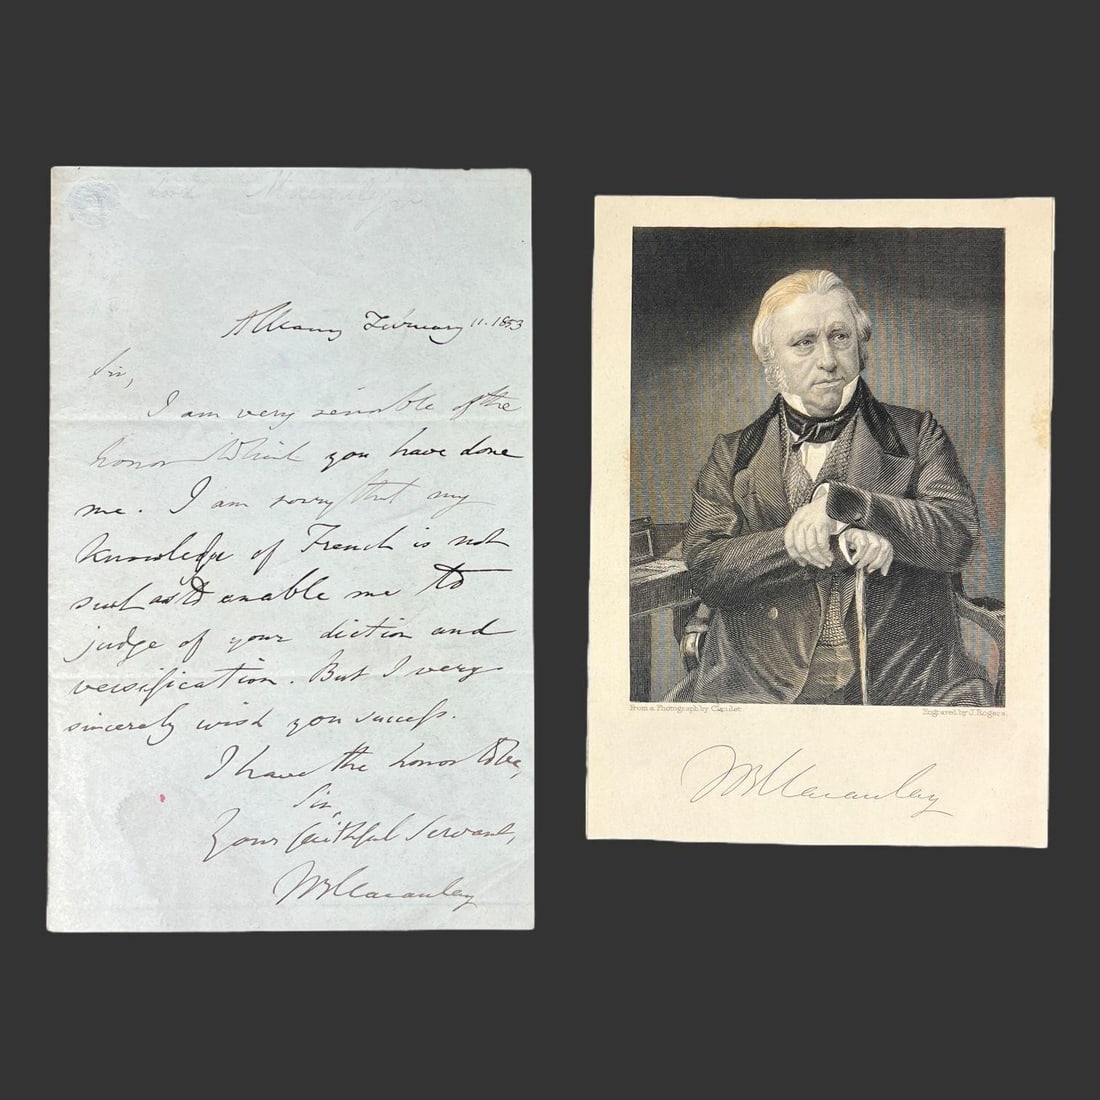 Lord Macaulay
Albany February 11. 1853
Sir,
I am very sensible of the
honor which you have done
me. I am sorry that my
knowledge of French is not
such as to enable me to
judge of your diction and
versification. But I very
sincerely wish you success.
I have the honor to be,
Sir,
Your faithful Servant,
TBMacaulay
From a Photograph by Claudet.
Engraved by J. Rogers.
TBMacaulay